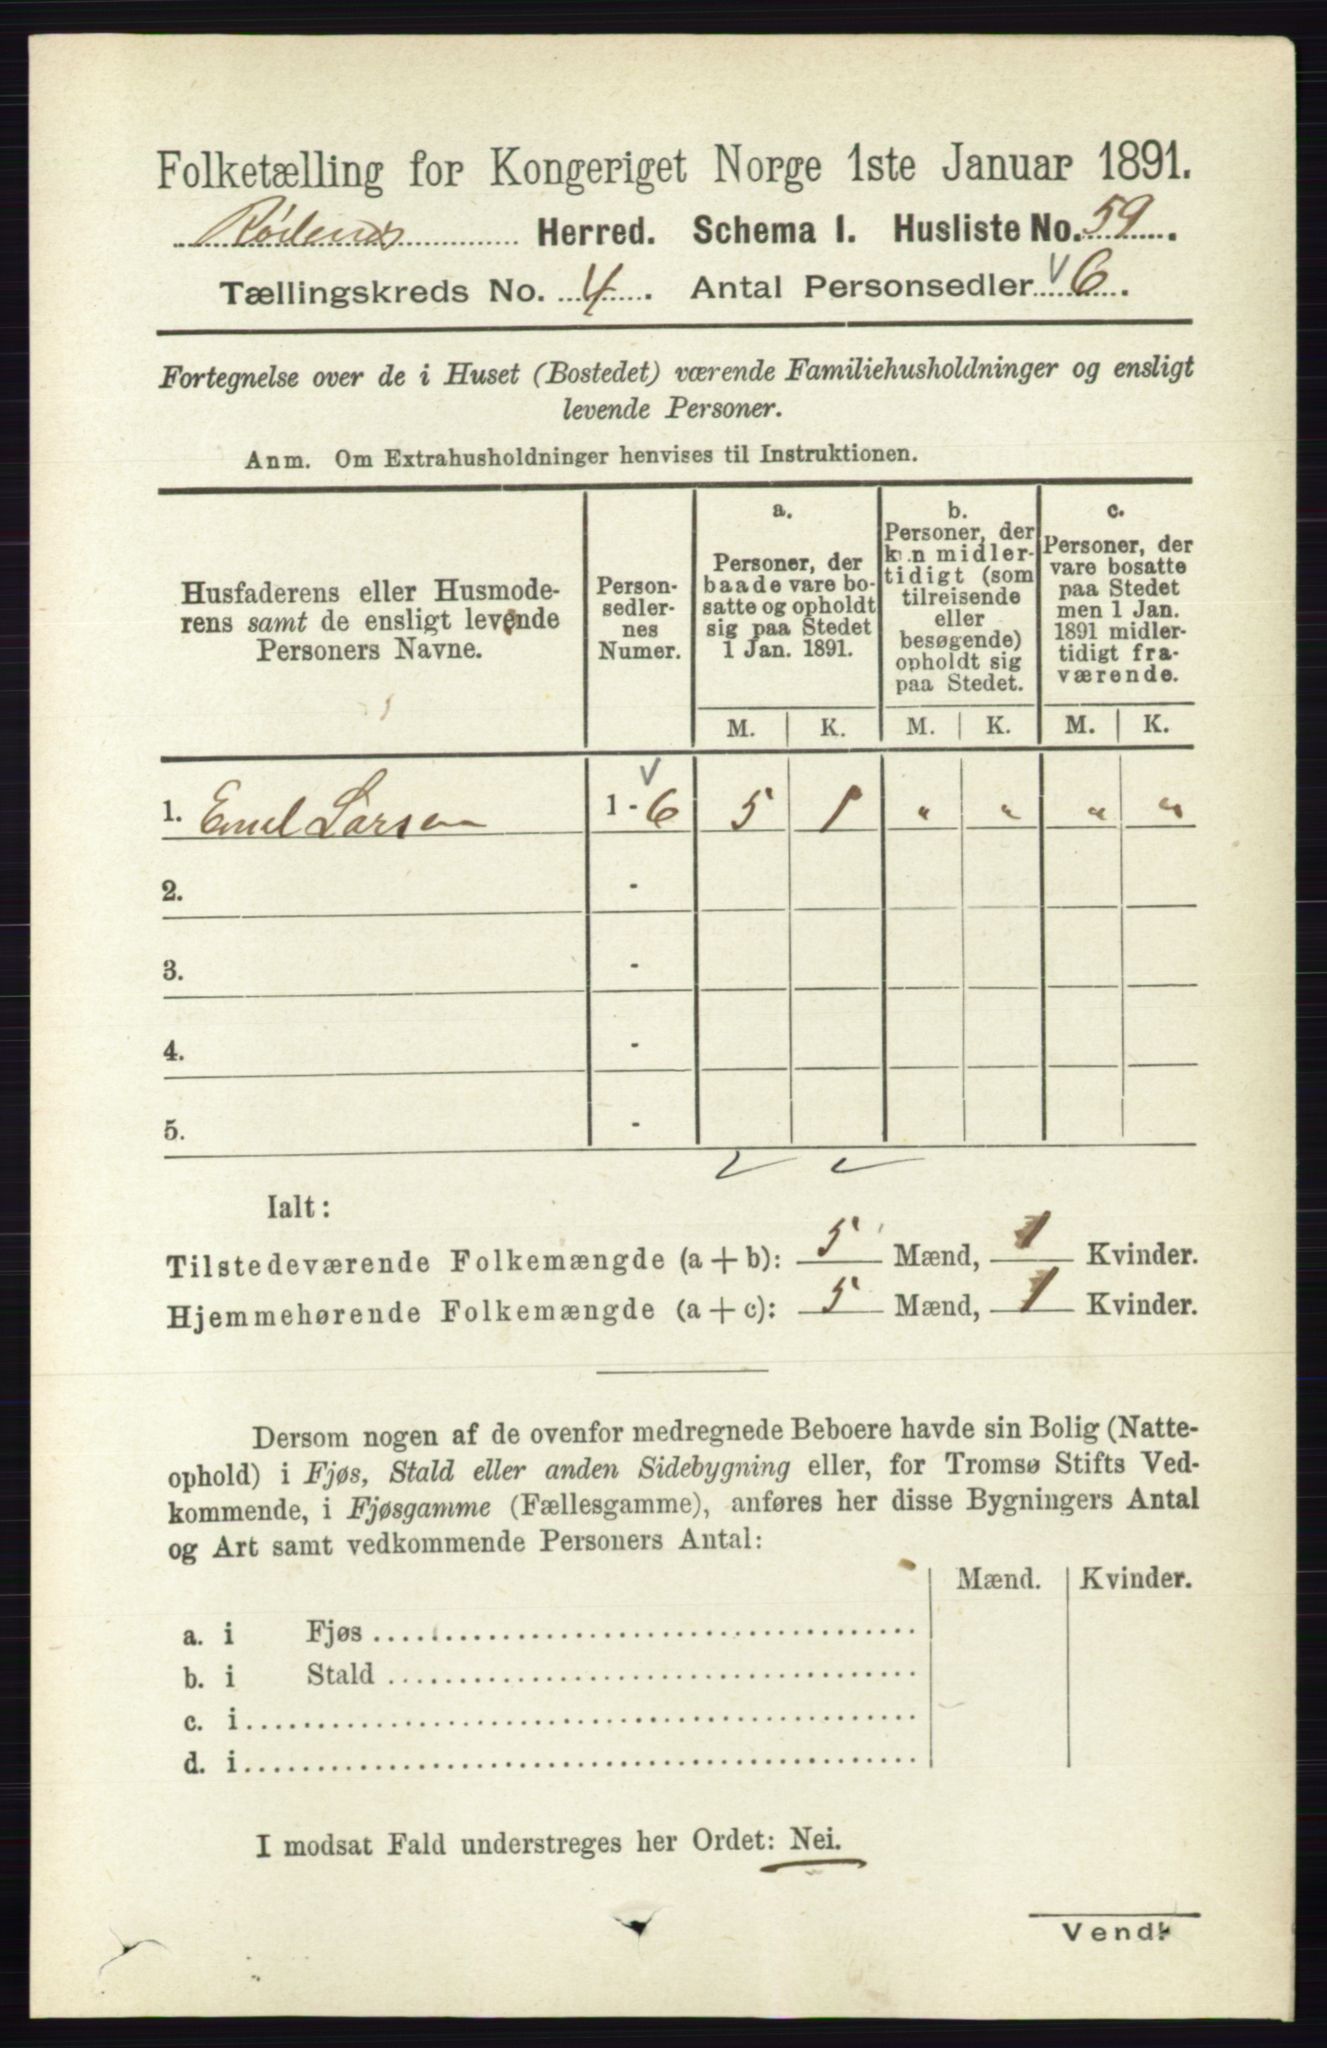 Folketælling for Kongeriget Norge 1ste Januar 1891.
Rödenes Herred. Schema I. Husliste No. 59.
Tællingskreds No. 4. Antal Personsedler 6.
Fortegnelse over de i Huset (Bostedet) værende Familiehusholdninger og ensligt
levende Personer.
Anm. Om Extrahusholdninger henvises til Instruktionen.
Husfaderens eller Husmode-
rens samt de ensligt levende
Personers Navne.
Person-
sedler-
nes
Numer.
a.
Personer, der
baade vare bo-
satte og opholdt
sig paa Stedet
1 Jan. 1891.
b.
Personer, der
kun midler-
tidigt (som
tilreisende
eller
besøgende)
opholdt sig
paa Stedet.
c.
Personer, der
vare bosatte
paa Stedet
men 1 Jan.
1891 midler-
tidigt fra-
værende.
M. K. M. K. M. K.
1. Emil Larsen 1 - 6 5 1 " " " "
2. -
3. -
4. -
5. -
Ialt:
Tilstedeværende Folkemængde (a + b): 5 Mænd, 1 Kvinder.
Hjemmehørende Folkemængde (a + c): 5 Mænd, 1 Kvinder.
Dersom nogen af de ovenfor medregnede Beboere havde sin Bolig (Natte-
ophold) i Fjøs, Stald eller anden Sidebygning eller, for Tromsø Stifts Ved-
kommende, i Fjøsgamme (Fællesgamme), anføres her disse Bygningers Antal
og Art samt vedkommende Personers Antal:
Mænd. Kvinder.
a. i Fjøs
b. i Stald
c. i
d. i
I modsat Fald understreges her Ordet: Nei.
Vend!